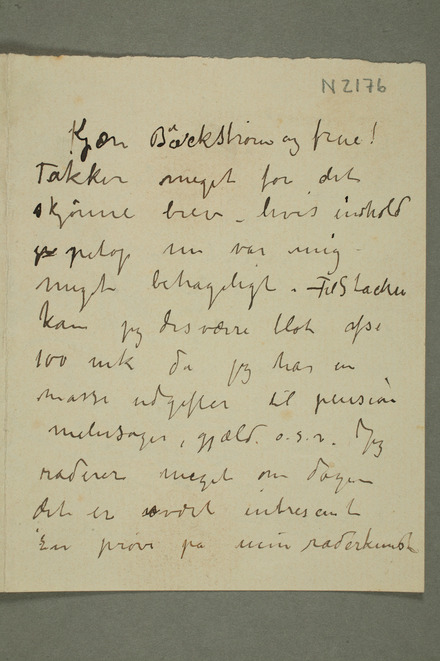 N 2176
Kjære Bäckström og frue!
Takker meget for det
skjønne brev – hvis indhold
netop nu var mig
meget behageligt. – Til Stachu
kan jeg desværre blot afse
100 mk da jeg har en
masse udgifter til pension
malersager, gjæld. o.s.v. Jeg
raderer meget om dagen
det er svært intresant
En prøve på min raderkunst